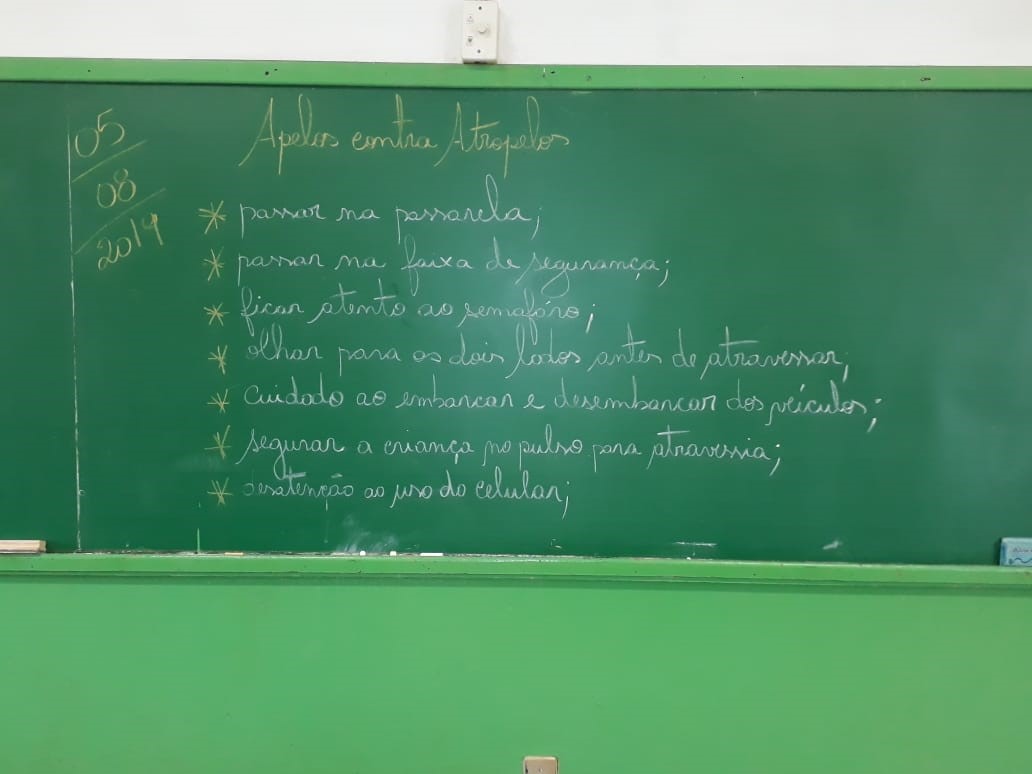 05
08
2019
Apelos contra Atropelos
* passar na passarela;
* passar na faixa de segurança;
* ficar atento ao semafóro;
* olhar para os dois lados antes de atravessar;
* cuidado ao embarcar e desembarcar dos veículos;
* segurar a criança no pulso para atravessia;
* desatenção ao uso do celular;